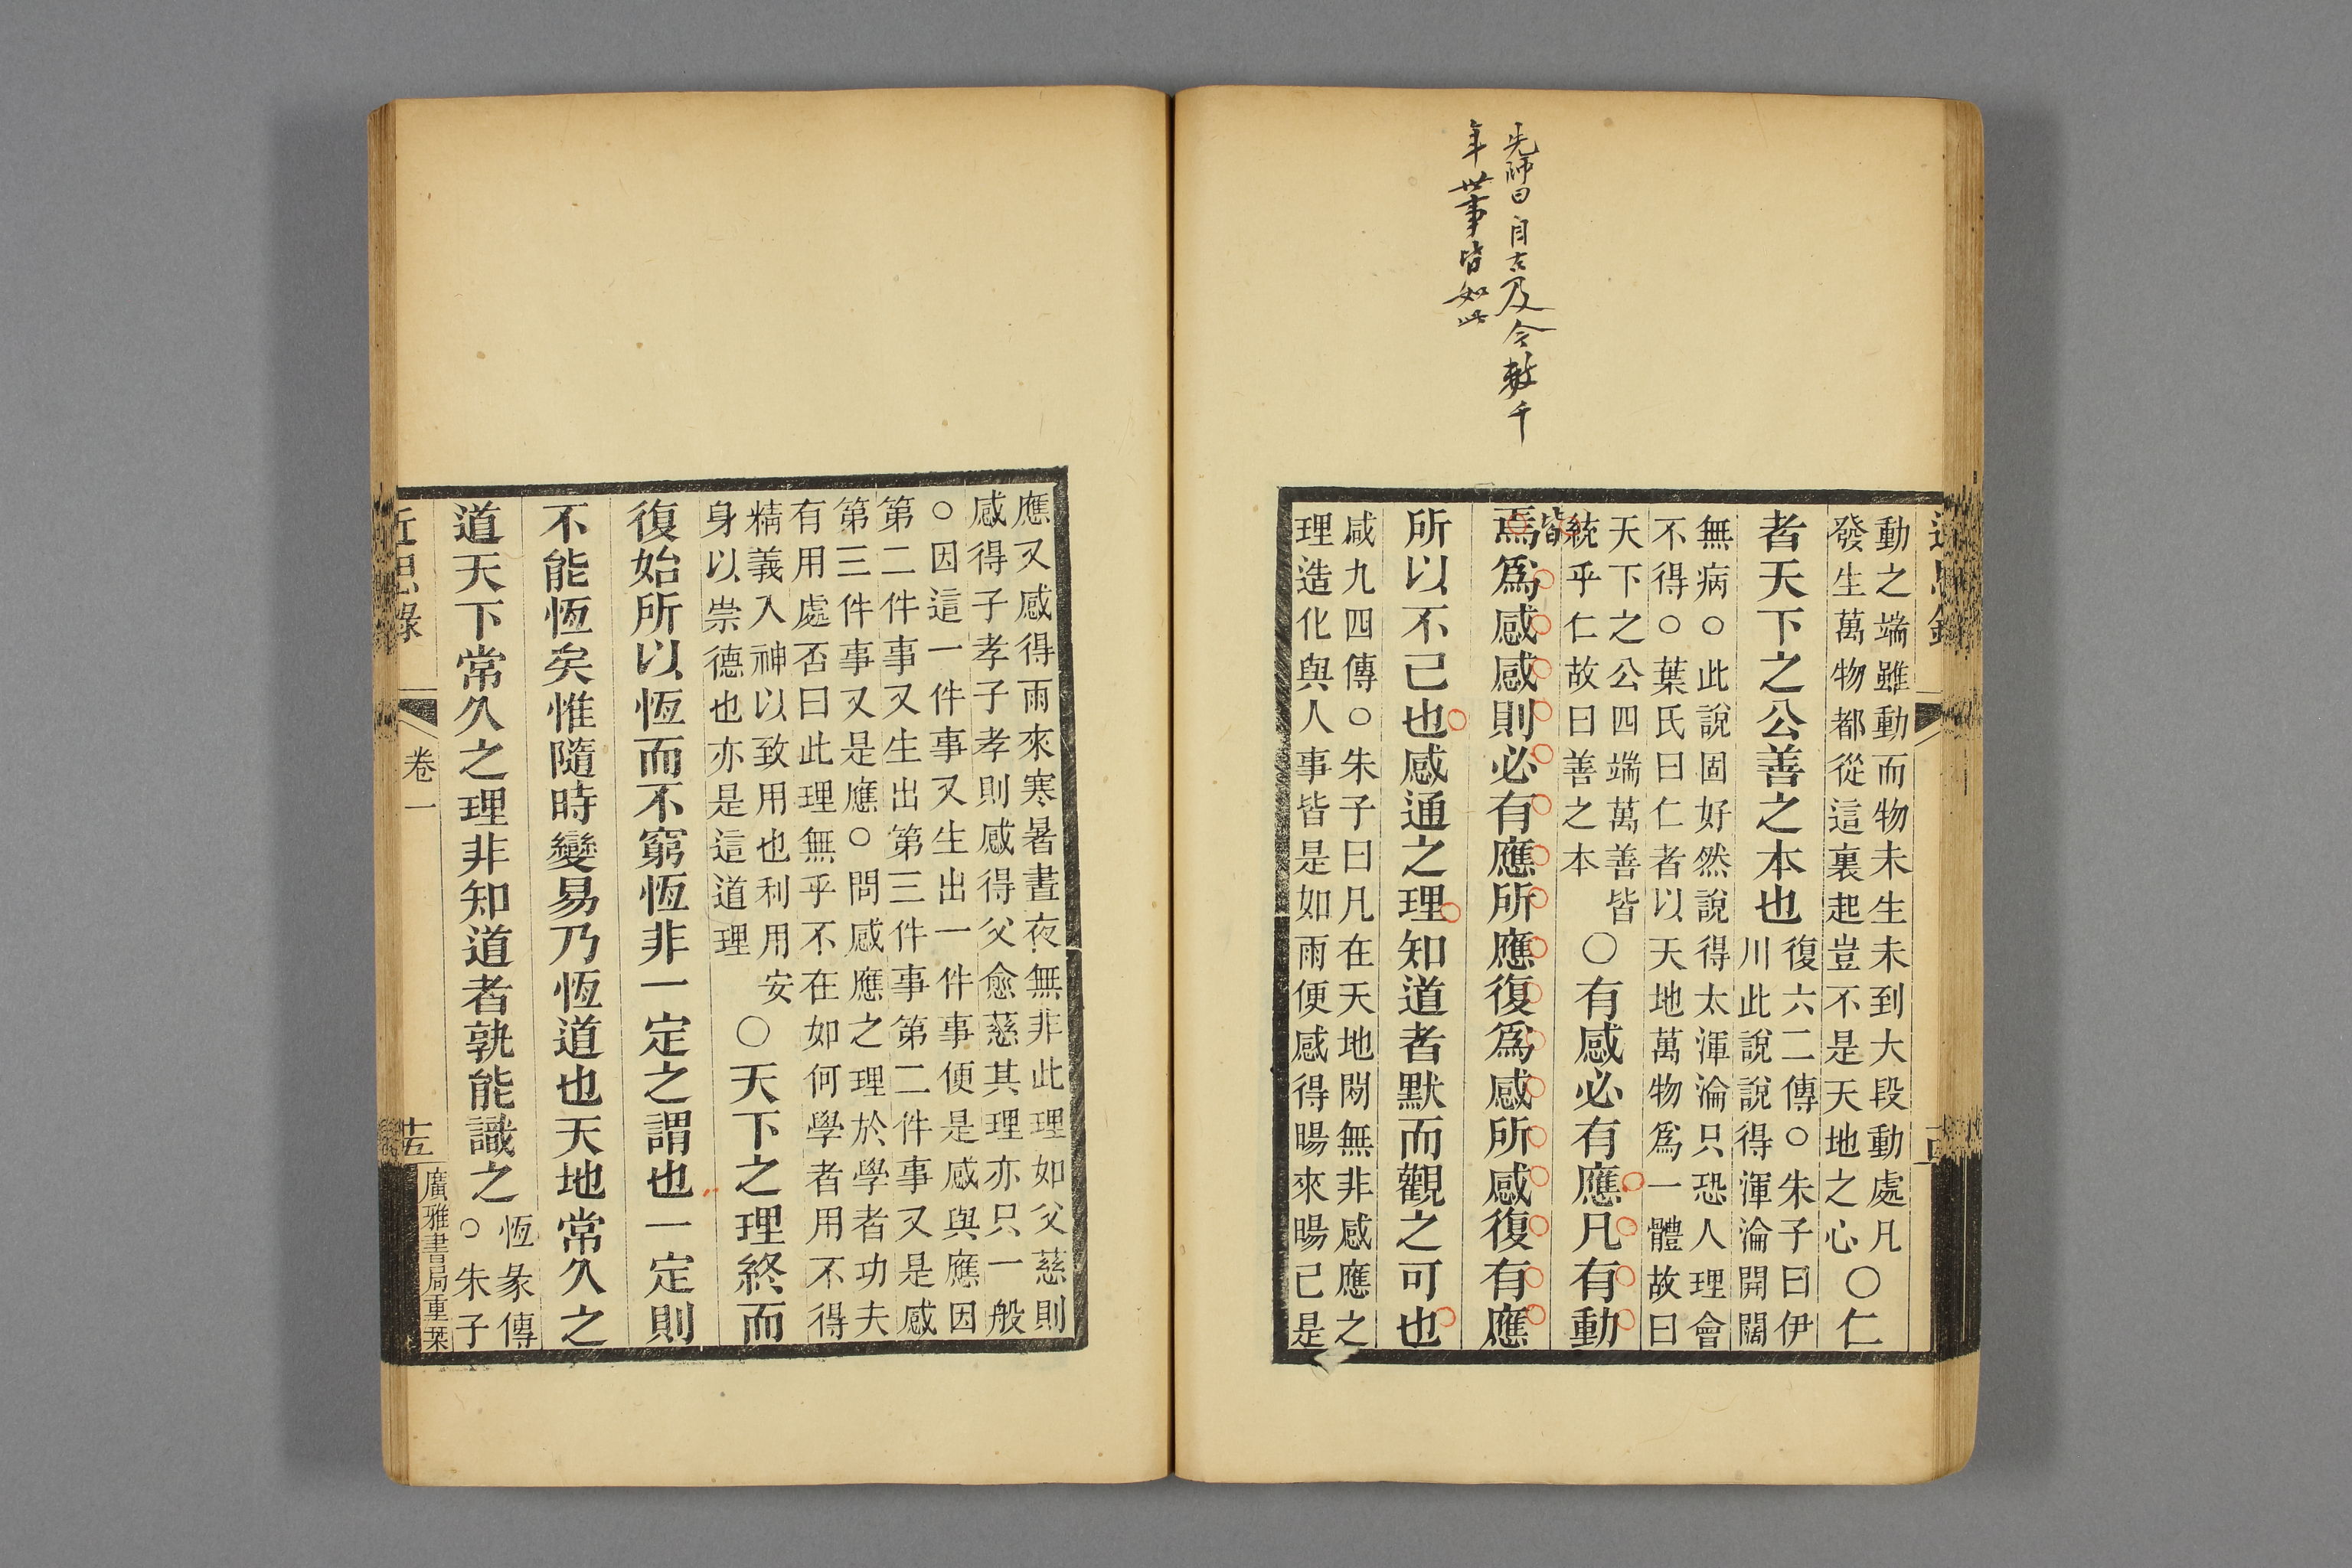 先師曰自古及今數千
年世事皆如此
動之端雖動而物未生未到大段動處凡
發生萬物都從這裏起豈不是天地之心
〇仁
者天下之公善之本也
復六二傳○朱子曰伊
川此說說得渾淪開闊
無病○此說固好然說得太渾淪只恐人理會
不得○葉氏曰仁者以天地萬物爲一體故曰
天下之公四端萬善皆
統乎仁故曰善之本
〇有感必有應凡有動
皆
焉爲感感則必有應所應復爲感所感復有應
所以不已也感通之理知道者默而觀之可也
咸九四傳○朱子曰凡在天地閒無非感應之
理造化與人事皆是如雨便感得暘來暘已是
應又感得雨來寒暑晝夜無非此理如父慈則
感得子孝子孝則感得父愈慈其理亦只一般
○因這一件事又生出一件事便是感與應因
第二件事又生出第三件事第二件事又是感
第三件事又是應○問感應之理於學者功夫
有用處否曰此理無乎不在如何學者用不得
精義入神以致用也利用安
身以崇德也亦是這道理
〇天下之理終而
復始所以恆而不窮恆非一定之謂也一定則
不能恆矣惟隨時變易乃恆道也天地常久之
道天下常久之理非知道者孰能識之
恆彖傳
○朱子
近思錄
卷一
十五
廣雅書局重栞